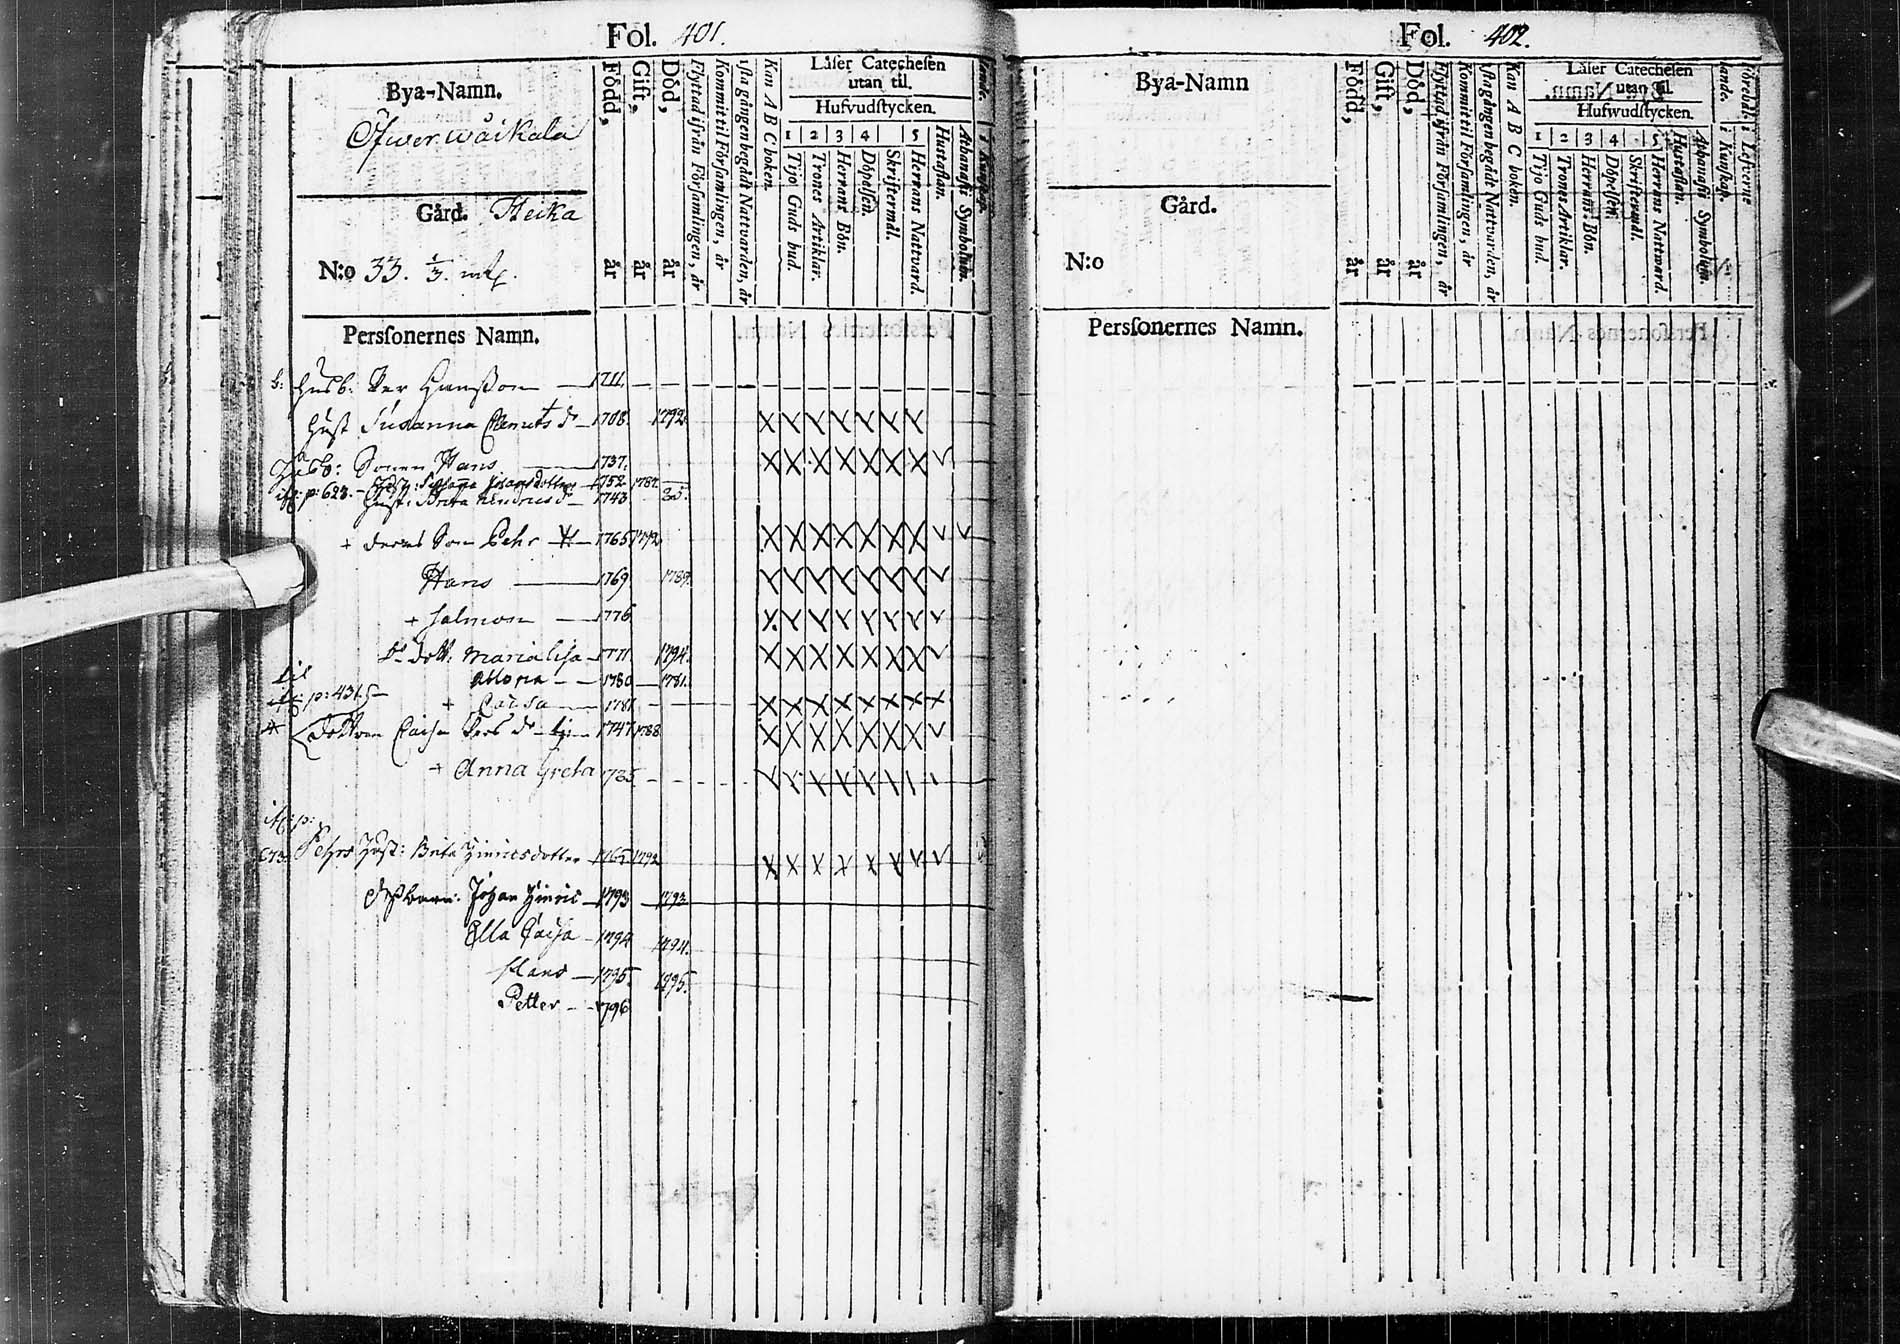 Fol. 401.
Bya-Namn.
Öfwer wäikala
Gård. Heika
N:o 33. 1/3. mtl.
Perſonernes Namn.
Född, år
Gift, år
Död, år
Flyttad ifrån Förſamlingen, år
Kommit til Förſamlingen, år
Kan A B C boken.
Läſer Catecheſen
utan til.
Hufvudſtycken.
1 2 3 4 5
Tijo Guds bud.
Trones Artiklar.
Herrans Bön.
Döpelſen.
Skriftermål.
Herrans Nattvard.
Huſtaflan.
Athanaſii Symbolum.
b: Huſb: Per Hansson 1711.
Huſt Susanna 1708. 1792.
Sonen Hans 1737.
p: 623. 1752. 1787.
Huſt: Brita Hindricsdr 1743
+ deras Son Pehr 1765 1792
Hans 1769 1789.
+ Salmon 1776
Dr Dott: Maria Lisa 1771. 1794.
til 1780 1781.
p: 431. + Caisa 1781.
Dottren Caisa Pers dr 1747 1788
+ Anna Greta 1785
p:
673 Pehrs Huſt: Brita Hinricsdotter 1765 1792
barn: Johan Hinric 1793 1793
Ella Caisa 1794 1794.
Hans 1795 1795.
Petter 1796
Fol. 402.
Bya-Namn
Gård.
N:o
Perſonernes Namn.
Född, år
Gift, år
Död, år
Flyttad ifrån Förſamlingen, år
Kommit til Förſamlingen, år
Kan A B C boken.
Läſer Catecheſen
utan til.
Hufwudſtycken.
1 2 3 4 5
Tijo Guds bud.
Trones Artiklar.
Herrans Bön.
Döpelſen.
Skriftermål.
Herrans Nattward.
Huſtaflan.
Athanaſii Symbolum.
i Kunſkap.
i Lefverne